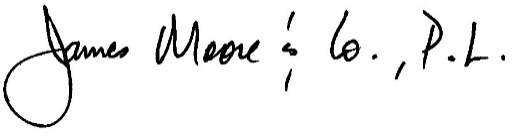 James Moore & Co., P.L.